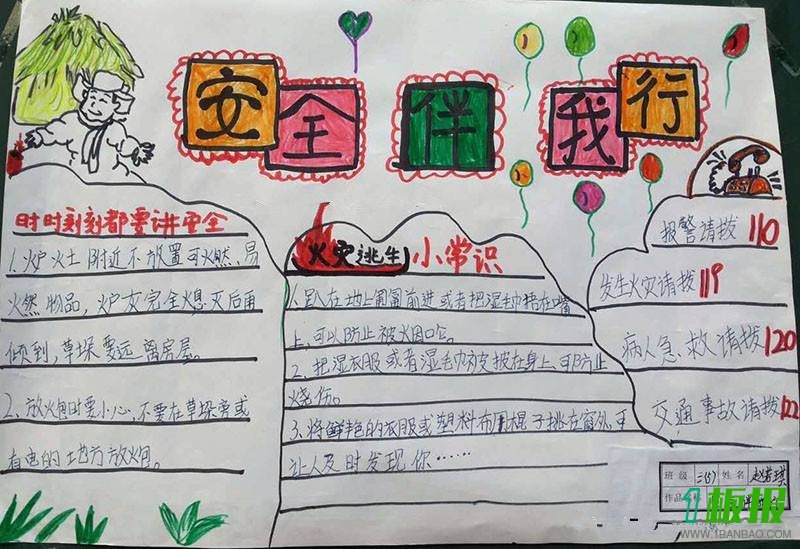 安全伴我行
时时刻刻都要讲安全
1.炉火土附近不放置可火然、易
火然物品，炉灰完全火息灭后再
倾到，草垛要远离房屋。
2、放火包时要小心，不要在草垛旁或
有电的地方放火包。
火灾逃生小常识
1.趴在地上匍匐前进或者把湿毛巾捂在嘴
上，可以防止被火因呛。
2、把湿衣服或者湿毛巾被披在身上，可防止
烧伤。
3.将鲜艳的衣服或塑料布用棍子挑在窗外，可
让人及时发现你……
报警请拨110
发生火灾请拨119
病人急救请拨120
交通事故请拨122
班级 三(5) 姓名
作品名
板报
WWW.1BANBAO.COM